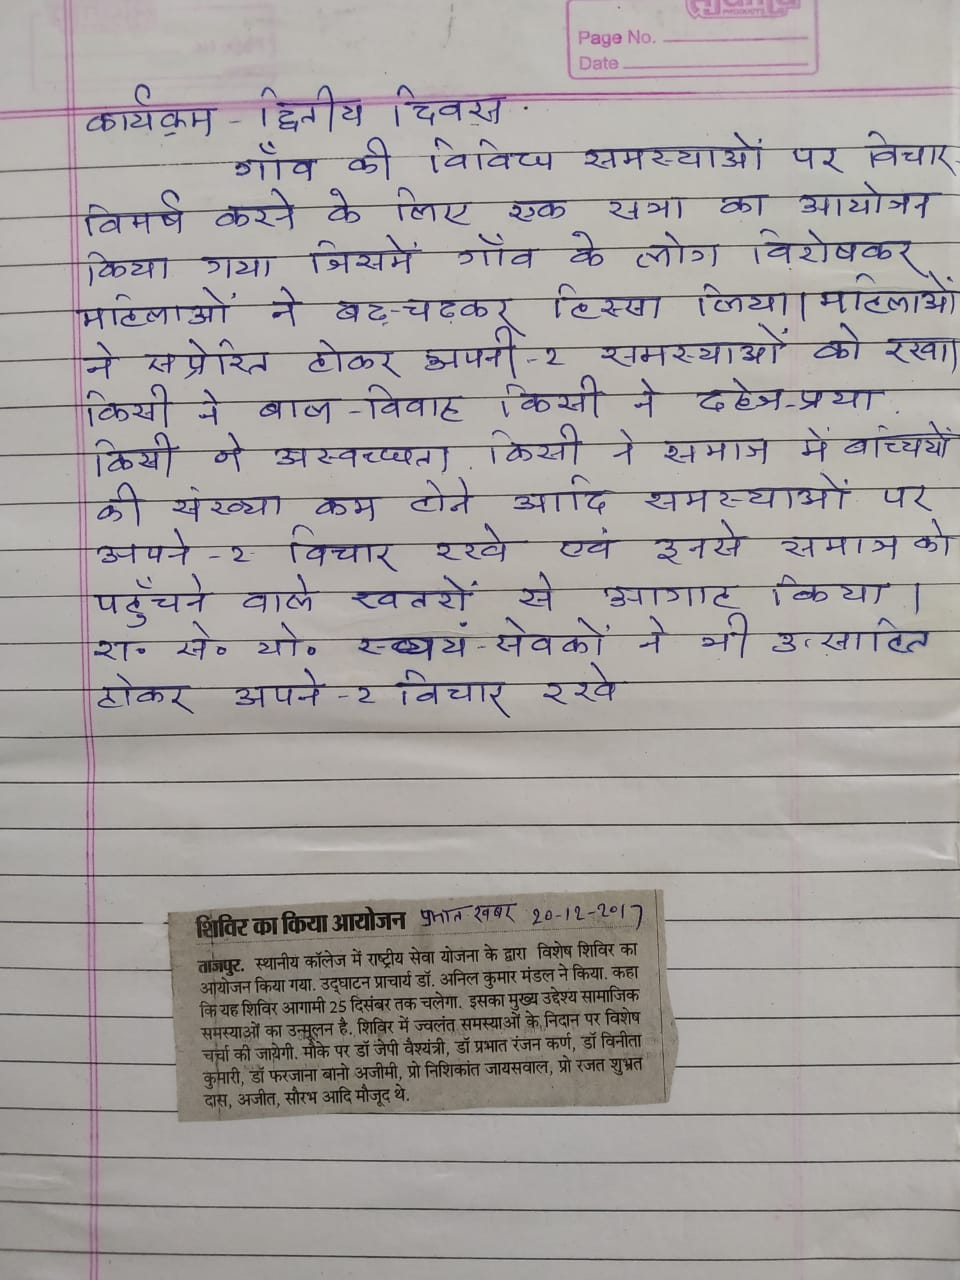 PRODUCTS
Page No.
Date
कार्यक्रम - द्वितीय दिवस.
गाँव की विविध समस्याओं पर विचार-
विमर्ष करने के लिए एक सभा का आयोजन
किया गया जिसमें गाँव के लोग विशेषकर
महिलाओं ने बढ़-चढ़कर हिस्सा लिया। महिलाओं
ने सप्रेरित होकर अपनी-२ समस्याओं को रखा।
किसी ने बाल-विवाह किसी ने दहेज-प्रथा.
किसी ने अस्वच्छता. किसी ने समाज में बच्चियों
की संख्या कम होने आदि समस्याओं पर
अपने-२ विचार रखे एवं इनसे समाज को
पहुँचने वाले खतरों से आगाह किया।
रा॰ से॰ यो॰ स्वयं-सेवकों ने भी उत्साहित
होकर अपने-२ विचार रखे
शिविर का किया आयोजन प्रभात खबर 20-12-2017
ताजपुर. स्थानीय कॉलेज में राष्ट्रीय सेवा योजना के द्वारा विशेष शिविर का
आयोजन किया गया. उद्घाटन प्राचार्य डॉ. अनिल कुमार मंडल ने किया. कहा
कि यह शिविर आगामी 25 दिसंबर तक चलेगा. इसका मुख्य उद्देश्य सामाजिक
समस्याओं का उन्मूलन है. शिविर में ज्वलंत समस्याओं के निदान पर विशेष
चर्चा की जायेगी. मौके पर डॉ जेपी वैश्यंत्री, डॉ प्रभात रंजन कर्ण, डॉ विनीता
कुमारी, डॉ फरजाना बानो अजीमी, प्रो निशिकांत जायसवाल, प्रो रजत शुभ्रत
दास, अजीत, सौरभ आदि मौजूद थे.